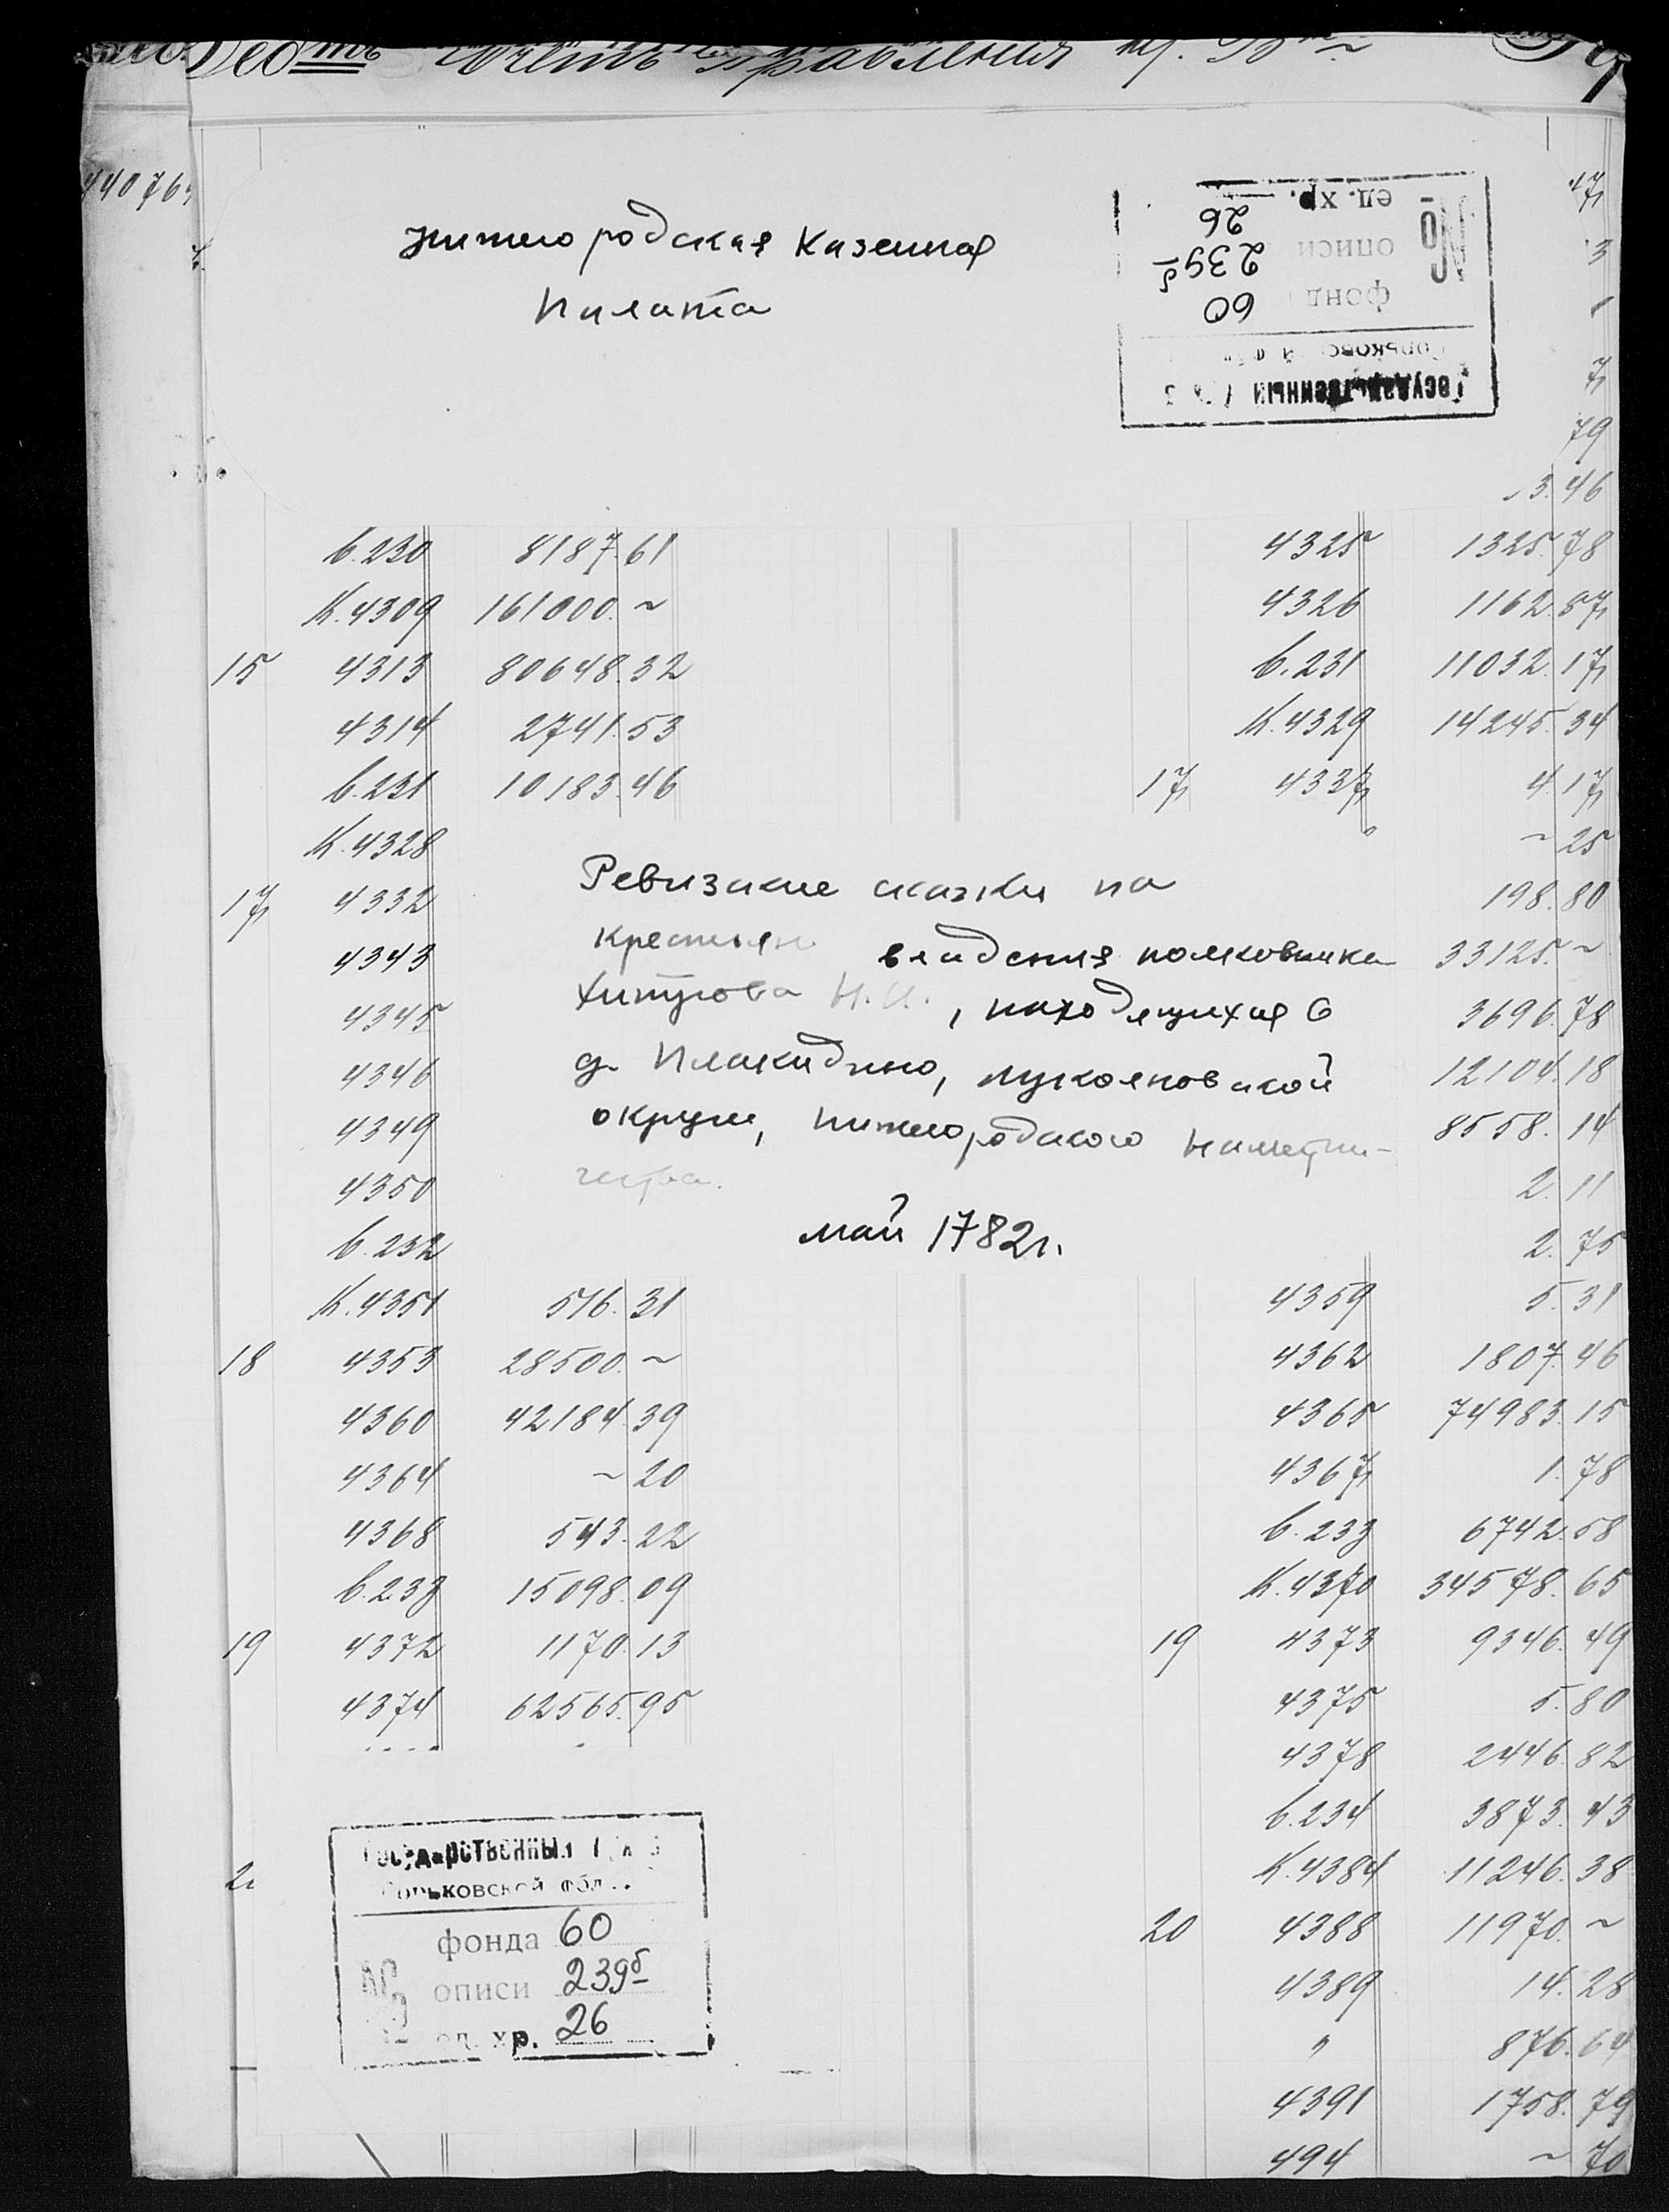 Счетъ Правления
44076
17
3
Нижегородская Казенная
Палата
Государственный
Горьковской
фонда 60
№ описи 239б
ед. хр. 26
7
79
3.46
в.230 8187.61 4325 1325.78
К.4309 161000.~ 4326 1162.87
15 4313 80648.32 в.231 11032.17
4314 2741.53 К.4329 14245.34
в.231 10183.46 17 4337 4.17
К.4328 ~25
17 4332 198.80
4343 33125.~
4345 3696.78
4346 12104.18
4349 8558.14
4350 2.11
в.232 2.75
Ревизские сказки на
крестьян владения полковника
Хитрова Н.И., находящихся в
д. Плакидино, Лукояновской
округи, Нижегородского наместни-
чества.
май 1782 г.
К.4351 516.31 4359 5.31
18 4353 28500.~ 4362 1807.46
4360 42184.39 4365 74983.15
4364 ~20 4367 1.78
4368 543.22 в.233 6742.58
в.233 15098.09 К.4370 34578.65
19 4372 1170.13 19 4373 9346.49
4374 62565.95 4375 5.80
4378 2446.82
в.234 3873.43
К.4384 11246.38
20 4388 11970.~
4389 14.28
" 876.64
4391 1758.79
494 ~70
Государственный
Горьковской обл.
фонда 60
№ описи 239б
ед. хр. 26